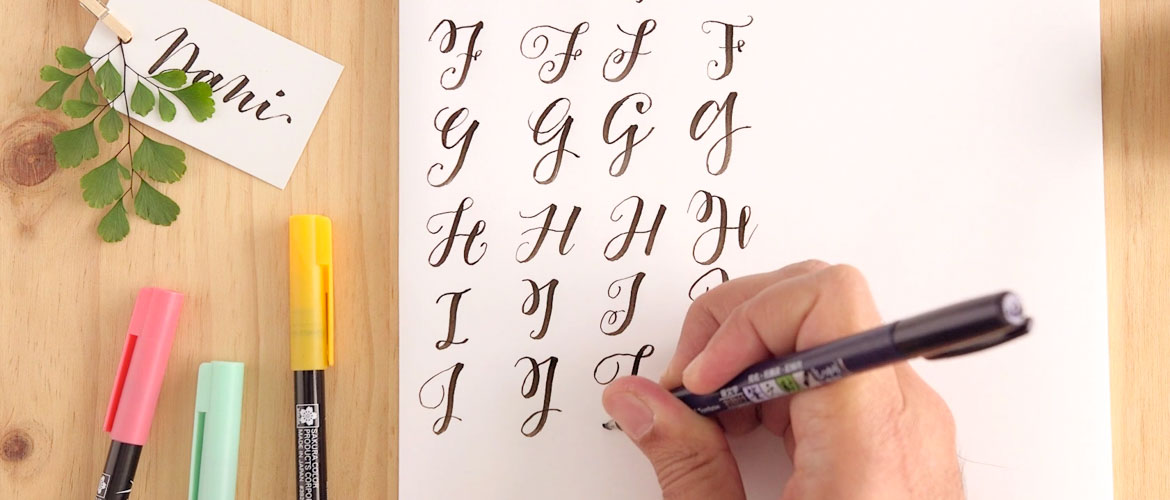 Dani.
F F F F
G G G G
H H H H
I I I
J J J
SAKURA COLOR
PRODUCTS CORPOR
MADE IN JAPAN